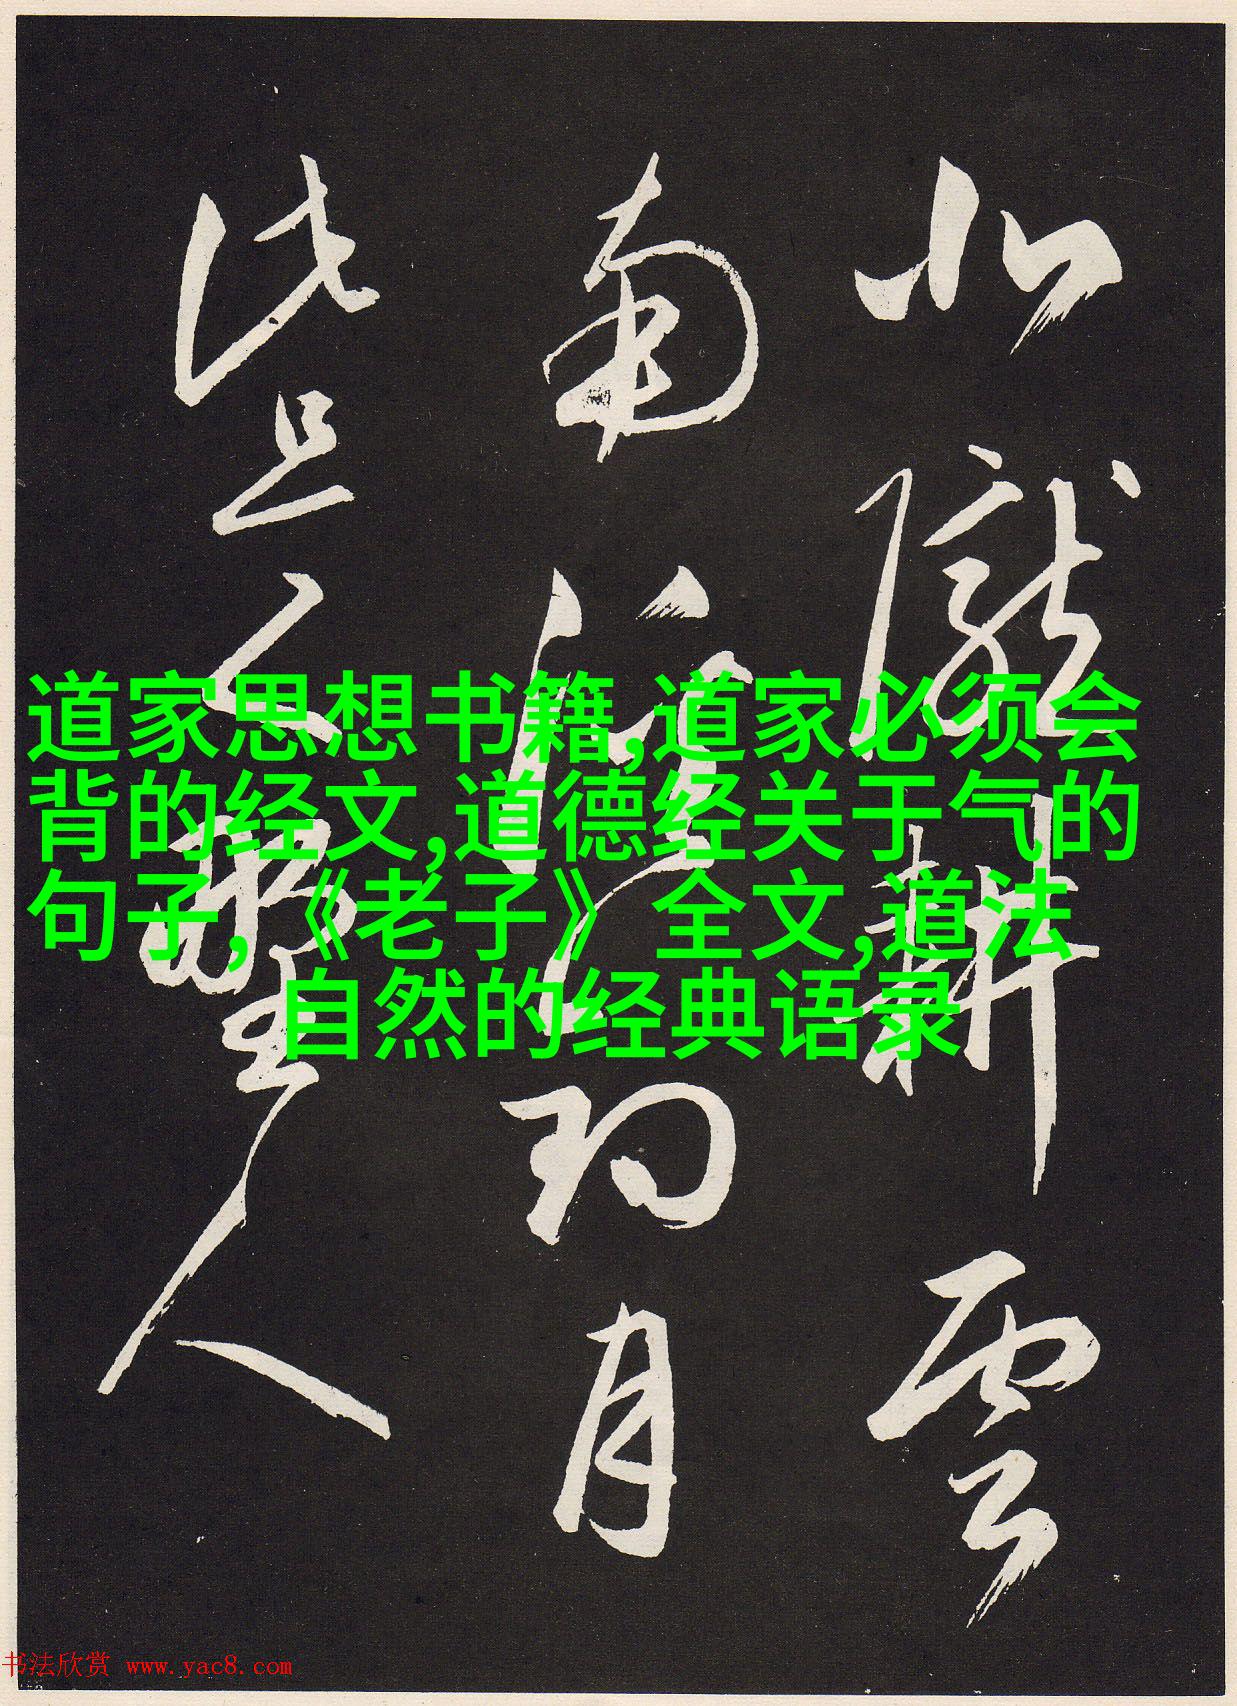 道家思想书籍,道家必须会
背的经文,道德经关于气的
句子,《老子》全文,道法
自然的经典语录
北隴耕雲
南溪釣月
此是野人
书法欣赏 www.yac8.com